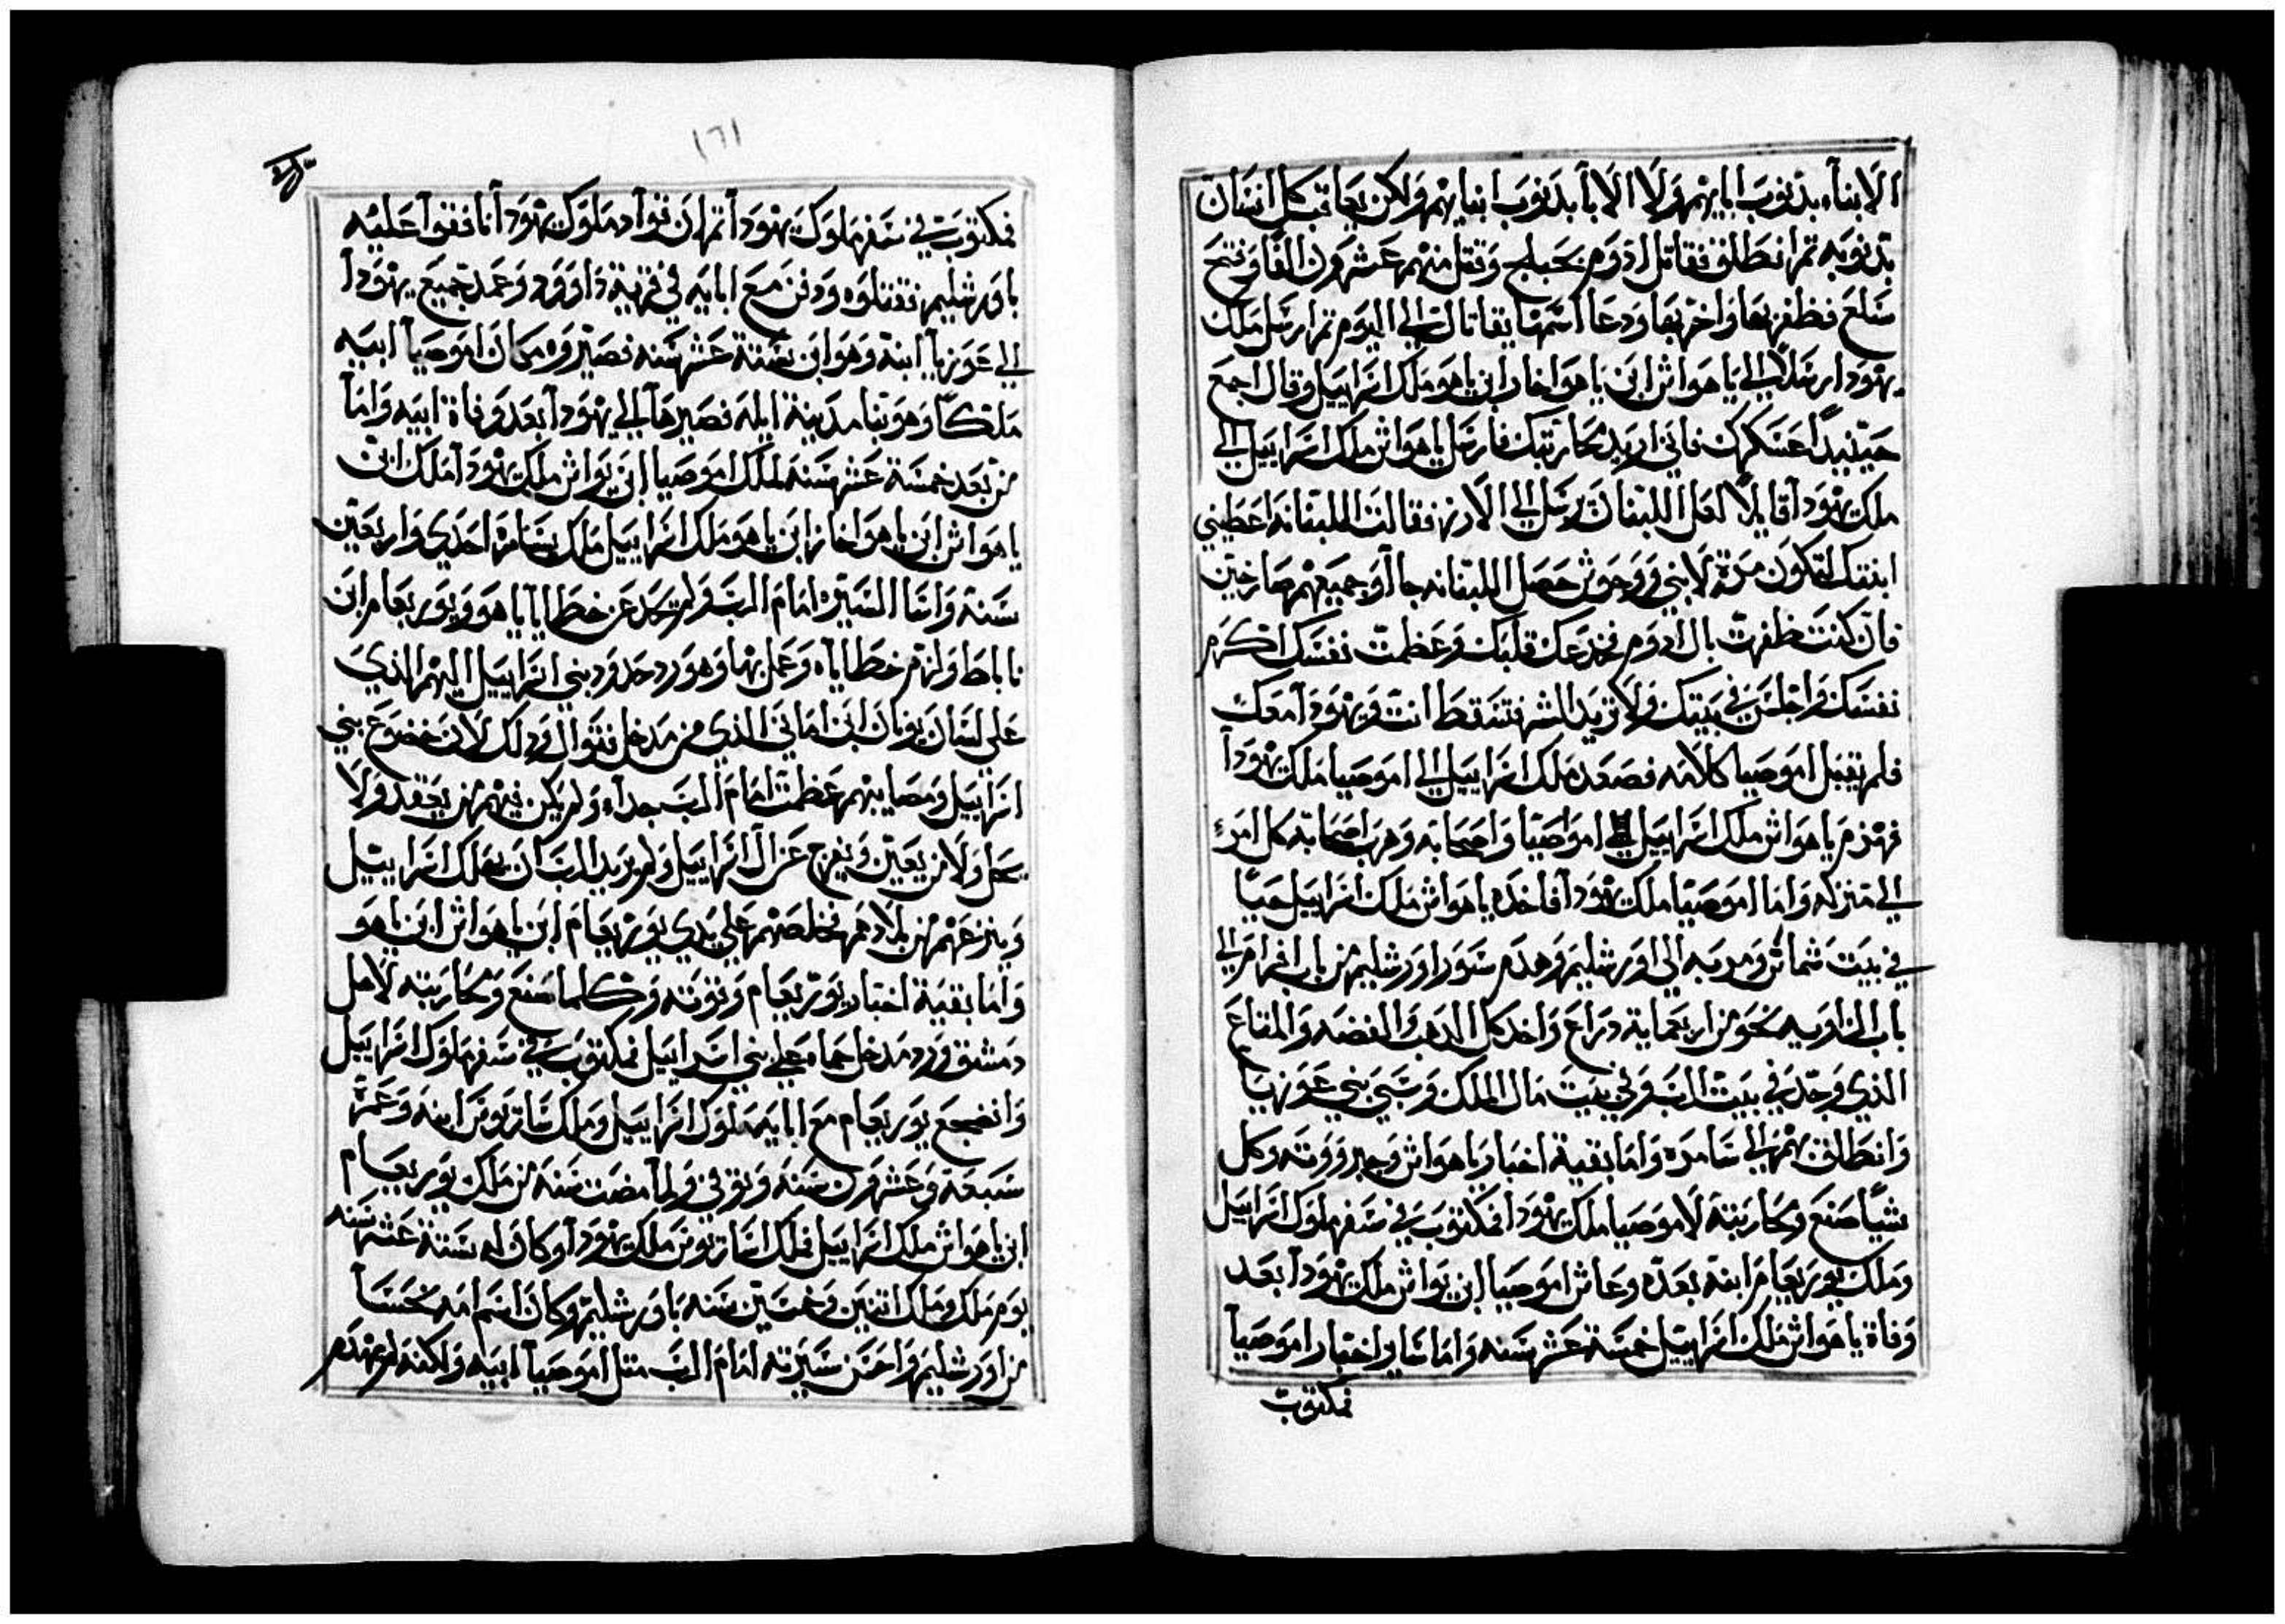 الابناء بدنوب ابايهم ولا الابا بدنوب ابنايهم ولكن يعاقب كل انسان
بدنوبه تم انطلق فقاتل ادوم بجبلج وقتل منهم عشرون الفا وفتح
سلع فظفر بها واخربها ودعا اسمها يقاتال الي اليوم تم ارسل ملك
يهودا رسلا الي ياهواش ابن ياهواخاز ابن ياهو ملك اسراييل وقال اجمع
حينيدا عسكرك فاني اريد محاربتك فارسل ياهواش ملك اسراييل الي
ملك يهودا قايلا لعل اللبنان يرسل الي الارز فقالت اللبنانه اعطيني
ابنتك لتكون مرة لابني ووحوش حصل اللبنانه جاآو جميعهم صارخين
فان كنت ظفرت بال ادوم فخدعك قلبك وعظمت نفسك اكرم
نفسك واجلس في بيتك ولا تريد الشر فتسقط انت ويهودا معك
فلم يقبل اموصيا كلامه فصعد ملك اسراييل الي اموصيا ملك يهودا
فهزم ياهواش ملك اسراييل الي اموصيا واصحابه وهرب اصحابه كل امرء
الي منزله واما اموصيا ملك يهودا فاخذه ياهواش ملك اسراييل حيا
في بيت شماش ومر به الي اورشليم وهدم سور اورشليم من باب افرام الي
باب الزاويه نحو من اربعماية دراع واخد كل الدهب والفضه والمتاع
الذي وجد في بيت الرب وفي بيت مال الملك وسبي بني عوزيا
وانطلق بهم الي سامره واما بقية اخبار ياهواش وجبروته وكل
شيا صنع ومحاربتة لاموصيا ملك يهودا فمكتوب في سفر ملوك اسراييل
وملك يوربعام ابنة بعده وعاش اموصيا ابن يواش ملك يهودا بعد
وفاة ياهواش ملك اسراييل خمسة عشر سنه واما ساير اخبار اموصيا
فمكتوب
١٦١
فمكتوب في سفر ملوك يهودا تم ان قواد ملوك يهودا نافقوا عليه
باورشليم فقتلوه ودفن مع ابايه في قرية داوود وعمد جميع يهودا
الي عوزيا ابنة وهو ابن ستة عشر سنه فصيروه مكان اموصيا ابيه
ملكا وهو بنا مدينة ايله فصيرها الي يهودا بعد وفاة ابيه واما
من بعد خمسة عشر سنه لملك اموصيا ابن يواش ملك يهودا ملك ابن
ياهواش ابن ياهواخاز ابن ياهو ملك اسراييل ملك بسامره احدي واربعين
سنة واسا السيره امام الرب ولم يحد عن خطايا ياهو ويوربعام ابن
ناباط ولزم خطاياه وعمل بها وهو رد حدود بني اسراييل اليهم الذي
علي لسان يونان ابن اماني الذي من مدخل فتوال ودلك لان خضوع بني
اسراييل ومصايبهم عظمت امام الرب جداء ولم يكن فيهم من يعقد ولا
يحل ولا من يعين ويفرج عن ال اسراييل ولم يريد الرب ان يهلك اسراييل
وينزعهم من بلادهم فخلصهم علي يدي يوربعام ابن ياهواش ابن ياهو
واما بقية اخبار يوربعام وقوته وكلما صنع ومحاربته لاهل
دمشق ورد مدخل حماه علي بني اسراييل فمكتوب في سفر ملوك اسراييل
وانضجع يوربعام مع ابايه ملوك اسراييل وملك شاربوش ابنه وعمره
سبعة وعشرون سنه وتوفي ولما مضت سنه من ملك يوربعام
ابن ياهواش ملك اسراييل فملك اشاربوش ملك يهودا وكان له ستة عشر سنه
يوم ملك وملك اتنين وخمسين سنه باورشليم وكان اسم امه يحسسا
من اورشليم واحسن سيرته امام الرب متل اموصيا ابيه ولكنه لم يهدم